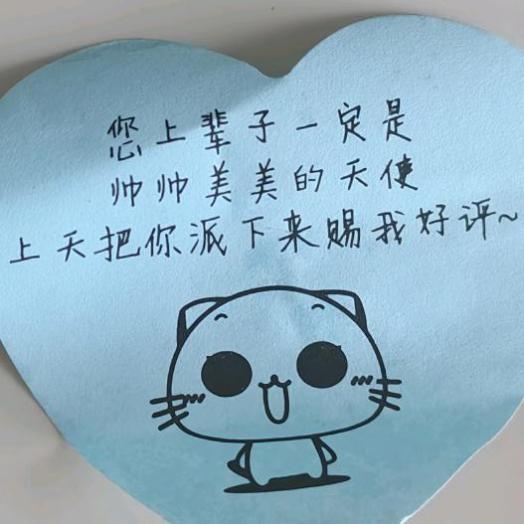 您上辈子一定是
帅帅美美的天使
上天把你派下来赐我好评~